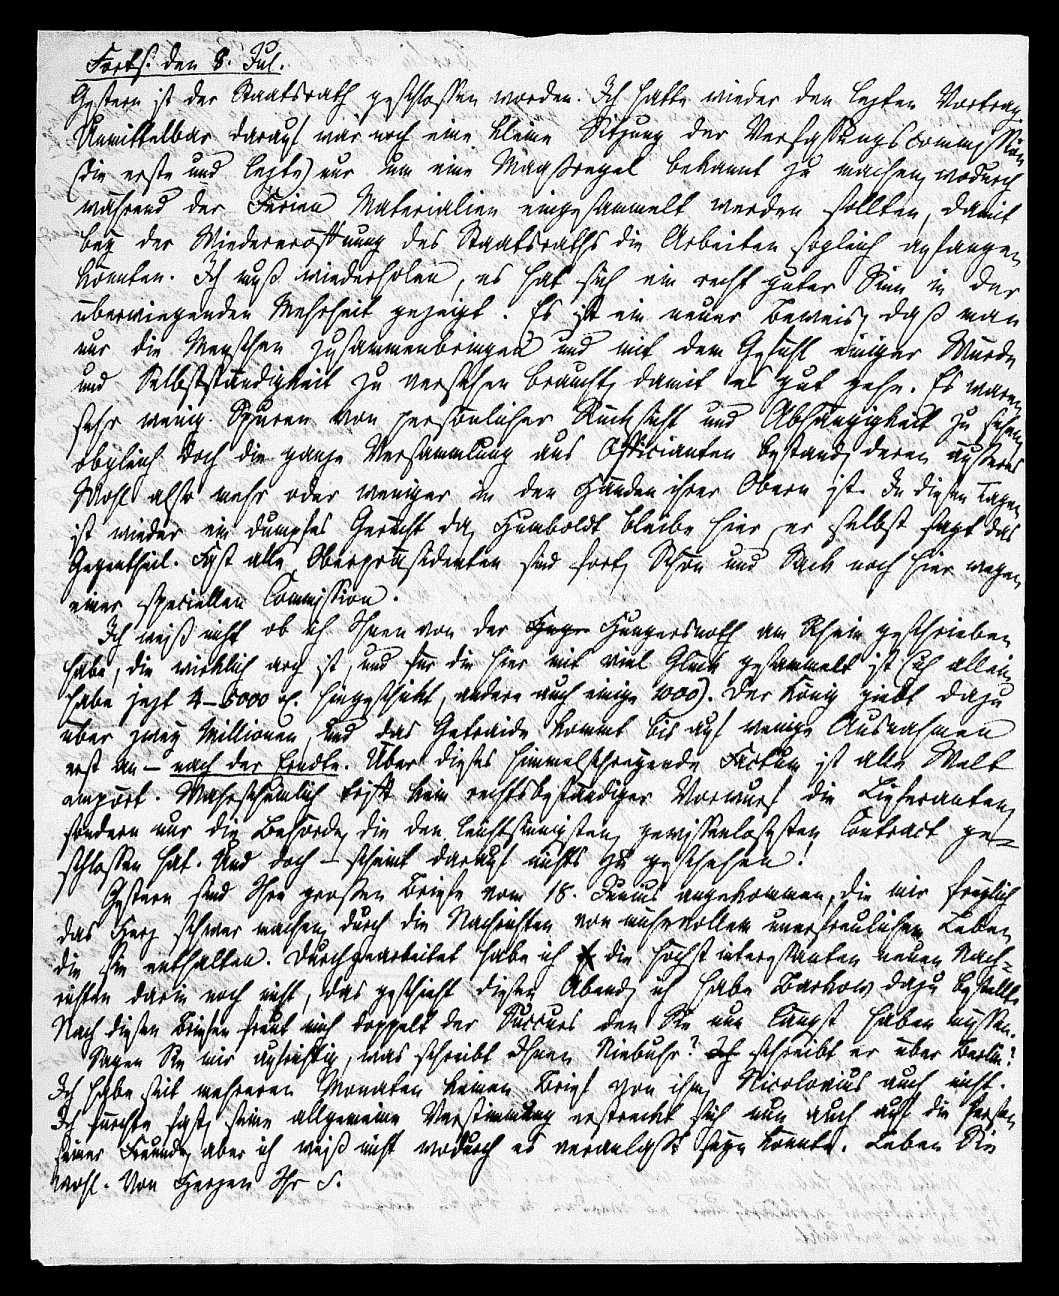 Forts. den 8. Jul.
Gestern ist der Staatsrath geschlossen worden. Ich hatte wieder den lezten Vortrag.
Unmittelbar darauf war noch eine kleine Sitzung der Verfassungscommission
(die erste und lezte) nur um eine Maasregel bekannt zu machen, wodurch
während der Ferien Materialien eingesammelt werden sollten, damit
bey der Wiedereröffnung des Staatsraths die Arbeiten sogleich anfangen
könnten. Ich muß wiederholen, es hat sich ein recht guter Sinn in der
überwiegenden Mehrheit gezeigt. Es ist ein neuer Beweis, daß man
nur die Menschen zusammenbringen und mit dem Gefühl einiger Würde
und Selbstständigkeit zu versehen braucht, damit es gut gehe. Es waren
sehr wenig Spuren von persönlicher Rücksicht und Abhängigkeit zu sehen,
obgleich doch die ganze Versammlung aus Officianten bestand, deren äußeres
Wohl also mehr oder weniger in den Händen ihrer Obern ist. In diesen Tagen
ist wieder ein dumpfes Gerücht da, Humboldt bleibe hier, er selbst sagt das
Gegentheil. Fast alle Oberpräsidenten sind fort, Schön und Sack noch hier wegen
einer speciellen Commission.
Ich weiß nicht ob ich Ihnen von der Hungersnoth am Rhein geschrieben
habe, die wirklich arg ist, und für die hier mit viel Glück gesammelt ist (ich allein
habe jezt 4–5000 rh. hingeschickt, andere auch einige 1000). Der König giebt dazu
über zwey Millionen, und das Getraide kommt bis auf wenige Ausnahmen
erst an – nach der Erndte. Über dieses himmelschreyende Factum ist alle Welt
empört. Wahrscheinlich trifft kein rechtsbeständiger Vorwurf die Lieferanten,
sondern nur die Behörde, die den leichtsinnigsten, gewissenlosesten Contract ge-
schlossen hat. Und doch – scheint darauf nichts zu geschehen!
Gestern sind Ihre großen Briefe vom 18. Junius angekommen, die mir freylich
das Herz schwer machen, durch die Nachrichten von mühevollem unerfreulichem Leben,
die sie enthalten. Durchgearbeitet habe ich die höchst interessanten neuen Nach-
richten darin noch nicht, das geschieht diesen Abend, ich habe Barkow dazu bestellt.
Nach diesen Briefen freut mich doppelt der Succurs den Sie nun längst haben müssen.
Sagen Sie mir aufrichtig, was schreibt Ihnen Niebuhr? schreibt er über Berlin?
Ich habe seit mehreren Monaten keinen Brief von ihm, Nicolovius auch nicht.
Ich fürchte fast, seine allgemeine Verstimmung erstreckt sich nun auch auf die fersten
seiner Freunde, aber ich weiß nicht wodurch es veranlaßt seyn könnte. Leben Sie
wohl. Von Herzen Ihr S.